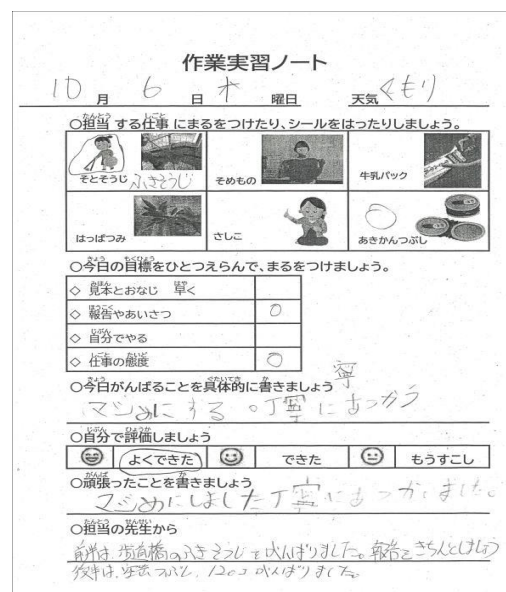 作業実習ノート
10 月 6 日 水 曜日 天気 くもり
○担当 する仕事 にまるをつけたり、シールをはったりしましょう。
そとそうじ ふきそうじ そめもの 牛乳パック
はっぱつみ さしこ あきかんつぶし
○今日の目標をひとつえらんで、まるをつけましょう。
◇ 見本とおなじ 早く
◇ 報告やあいさつ ○
◇ 自分でやる
◇ 仕事の態度 ○
○今日がんばることを具体的に書きましょう 寧
マジめにする 丁寧にあつかう
○自分で評価しましょう
よくできた できた もうすこし
○頑張ったことを書きましょう
マジめにしました丁寧にあつかいました。
○担当の先生から
前半は、歩道橋のふきそうじをがんばりました。報告をきちんとしましょう
後半は、缶つぶし、120コがんばりました。